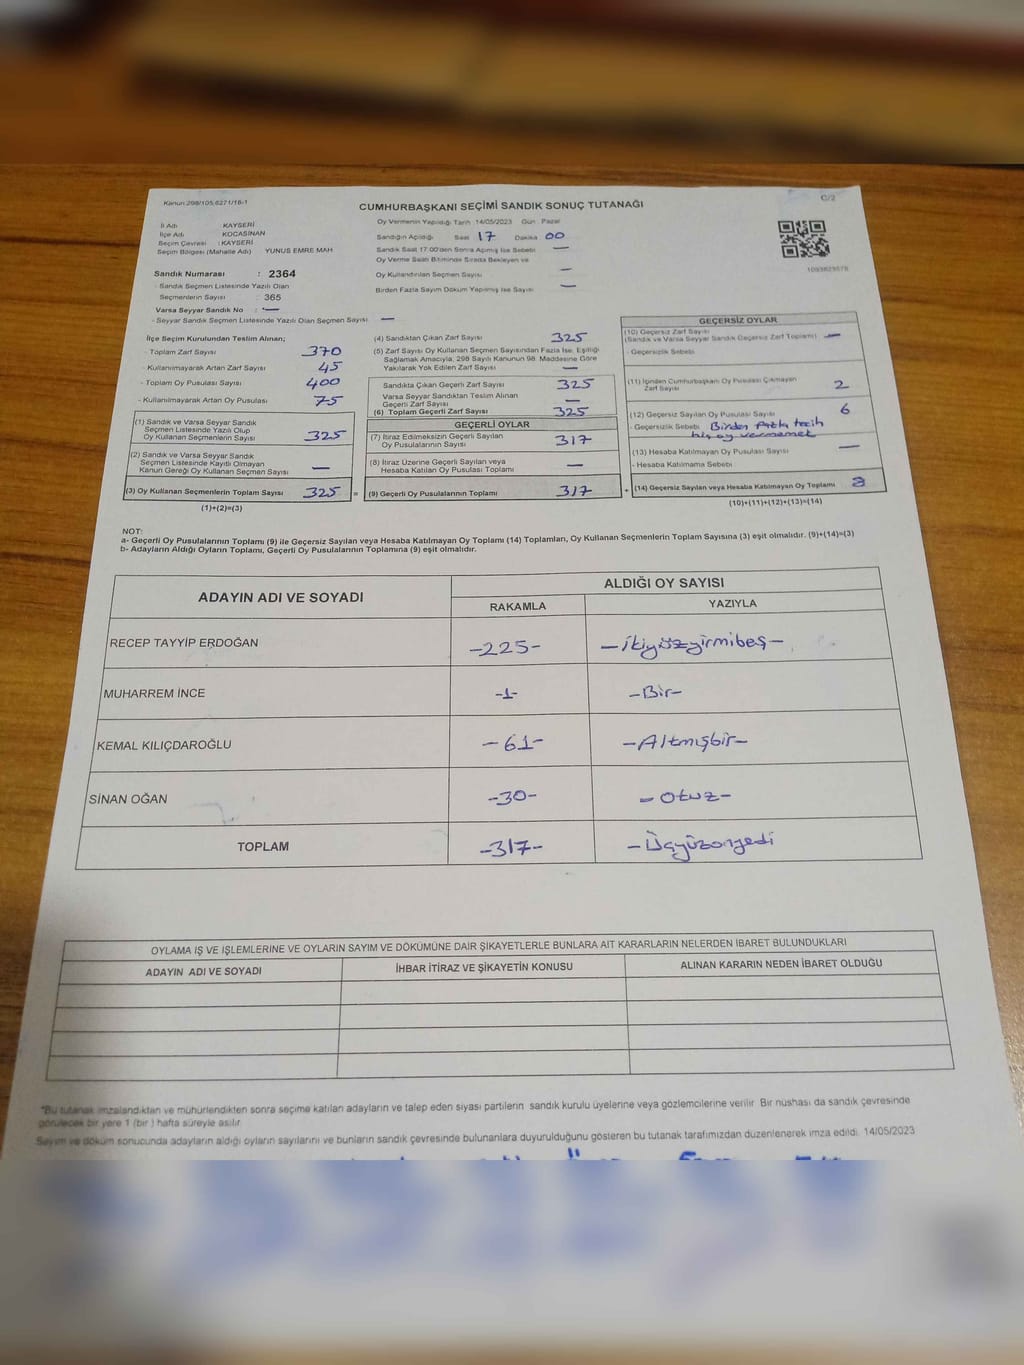 Kanun:298/105,6271/18-1
C/2
CUMHURBAŞKANI SEÇİMİ SANDIK SONUÇ TUTANAĞI
İli Adı KAYSERİ
İlçe Adı KOCASİNAN
Seçim Çevresi : KAYSERİ
Seçim Bölgesi (Mahalle Adı) YUNUS EMRE MAH
Oy Vermenin Yapıldığı Tarih 14/05/2023 Gün Pazar
Sandığın Açıldığı Saat 17 Dakika 00
Sandık Saat 17.00'den Sonra Açılmış İse Sebebi —
Oy Verme Saati Bitiminde Sırada Bekleyen ve
Oy Kullandırılan Seçmen Sayısı —
Birden Fazla Sayım Döküm Yapılmış İse Sayısı —
Sandık Numarası : 2364
- Sandık Seçmen Listesinde Yazılı Olan
Seçmenlerin Sayısı : 365
Varsa Seyyar Sandık No : —
- Seyyar Sandık Seçmen Listesinde Yazılı Olan Seçmen Sayısı —
İlçe Seçim Kurulundan Teslim Alınan;
- Toplam Zarf Sayısı 370
- Kullanılmayarak Artan Zarf Sayısı 45
- Toplam Oy Pusulası Sayısı 400
- Kullanılmayarak Artan Oy Pusulası 75
(1) Sandık ve Varsa Seyyar Sandık
Seçmen Listesinde Yazılı Olup
Oy Kullanan Seçmenlerin Sayısı 325
(2) Sandık ve Varsa Seyyar Sandık
Seçmen Listesinde Kayıtlı Olmayan
Kanun Gereği Oy Kullanan Seçmen Sayısı —
(3) Oy Kullanan Seçmenlerin Toplam Sayısı 325 =
(1)+(2)=(3)
(4) Sandıktan Çıkan Zarf Sayısı 325
(5) Zarf Sayısı Oy Kullanan Seçmen Sayısından Fazla İse, Eşitliği
Sağlamak Amacıyla, 298 Sayılı Kanunun 98. Maddesine Göre
Yakılarak Yok Edilen Zarf Sayısı —
Sandıkta Çıkan Geçerli Zarf Sayısı 325
Varsa Seyyar Sandıktan Teslim Alınan
Geçerli Zarf Sayısı —
(6) Toplam Geçerli Zarf Sayısı 325
GEÇERLİ OYLAR
(7) İtiraz Edilmeksizin Geçerli Sayılan
Oy Pusulalarının Sayısı 317
(8) İtiraz Üzerine Geçerli Sayılan veya
Hesaba Katılan Oy Pusulası Toplamı —
(9) Geçerli Oy Pusulalarının Toplamı 317 +
GEÇERSİZ OYLAR
(10) Geçersiz Zarf Sayısı
(Sandık ve Varsa Seyyar Sandık Geçersiz Zarf Toplamı) —
- Geçersizlik Sebebi
(11) İçinden Cumhurbaşkanı Oy Pusulası Çıkmayan
Zarf Sayısı 2
(12) Geçersiz Sayılan Oy Pusulası Sayısı 6
- Geçersizlik Sebebi Birden Fazla tercih
hiç oy vermemek
(13) Hesaba Katılmayan Oy Pusulası Sayısı —
- Hesaba Katılmama Sebebi
(14) Geçersiz Sayılan veya Hesaba Katılmayan Oy Toplamı 8
(10)+(11)+(12)+(13)=(14)
NOT:
a- Geçerli Oy Pusulalarının Toplamı (9) ile Geçersiz Sayılan veya Hesaba Katılmayan Oy Toplamı (14) Toplamları, Oy Kullanan Seçmenlerin Toplam Sayısına (3) eşit olmalıdır. (9)+(14)=(3)
b- Adayların Aldığı Oyların Toplamı, Geçerli Oy Pusulalarının Toplamına (9) eşit olmalıdır.
ADAYIN ADI VE SOYADI
ALDIĞI OY SAYISI
RAKAMLA YAZIYLA
RECEP TAYYİP ERDOĞAN -225- -İkiyüzyirmibeş-
MUHARREM İNCE -1- -Bir-
KEMAL KILIÇDAROĞLU -61- -Altmışbir-
SİNAN OĞAN -30- -Otuz-
TOPLAM -317- -Üçyüzonyedi
OYLAMA İŞ VE İŞLEMLERİNE VE OYLARIN SAYIM VE DÖKÜMÜNE DAİR ŞİKAYETLERLE BUNLARA AİT KARARLARIN NELERDEN İBARET BULUNDUKLARI
ADAYIN ADI VE SOYADI İHBAR İTİRAZ VE ŞİKAYETİN KONUSU ALINAN KARARIN NEDEN İBARET OLDUĞU
*Bu tutanak imzalandıktan ve mühürlendikten sonra seçime katılan adayların ve talep eden siyasi partilerin sandık kurulu üyelerine veya gözlemcilerine verilir. Bir nüshası da sandık çevresinde
görülecek bir yere 1 (bir) hafta süreyle asılır.
Sayım ve döküm sonucunda adayların aldığı oyların sayılarını ve bunların sandık çevresinde bulunanlara duyurulduğunu gösteren bu tutanak tarafımızdan düzenlenerek imza edildi. 14/05/2023